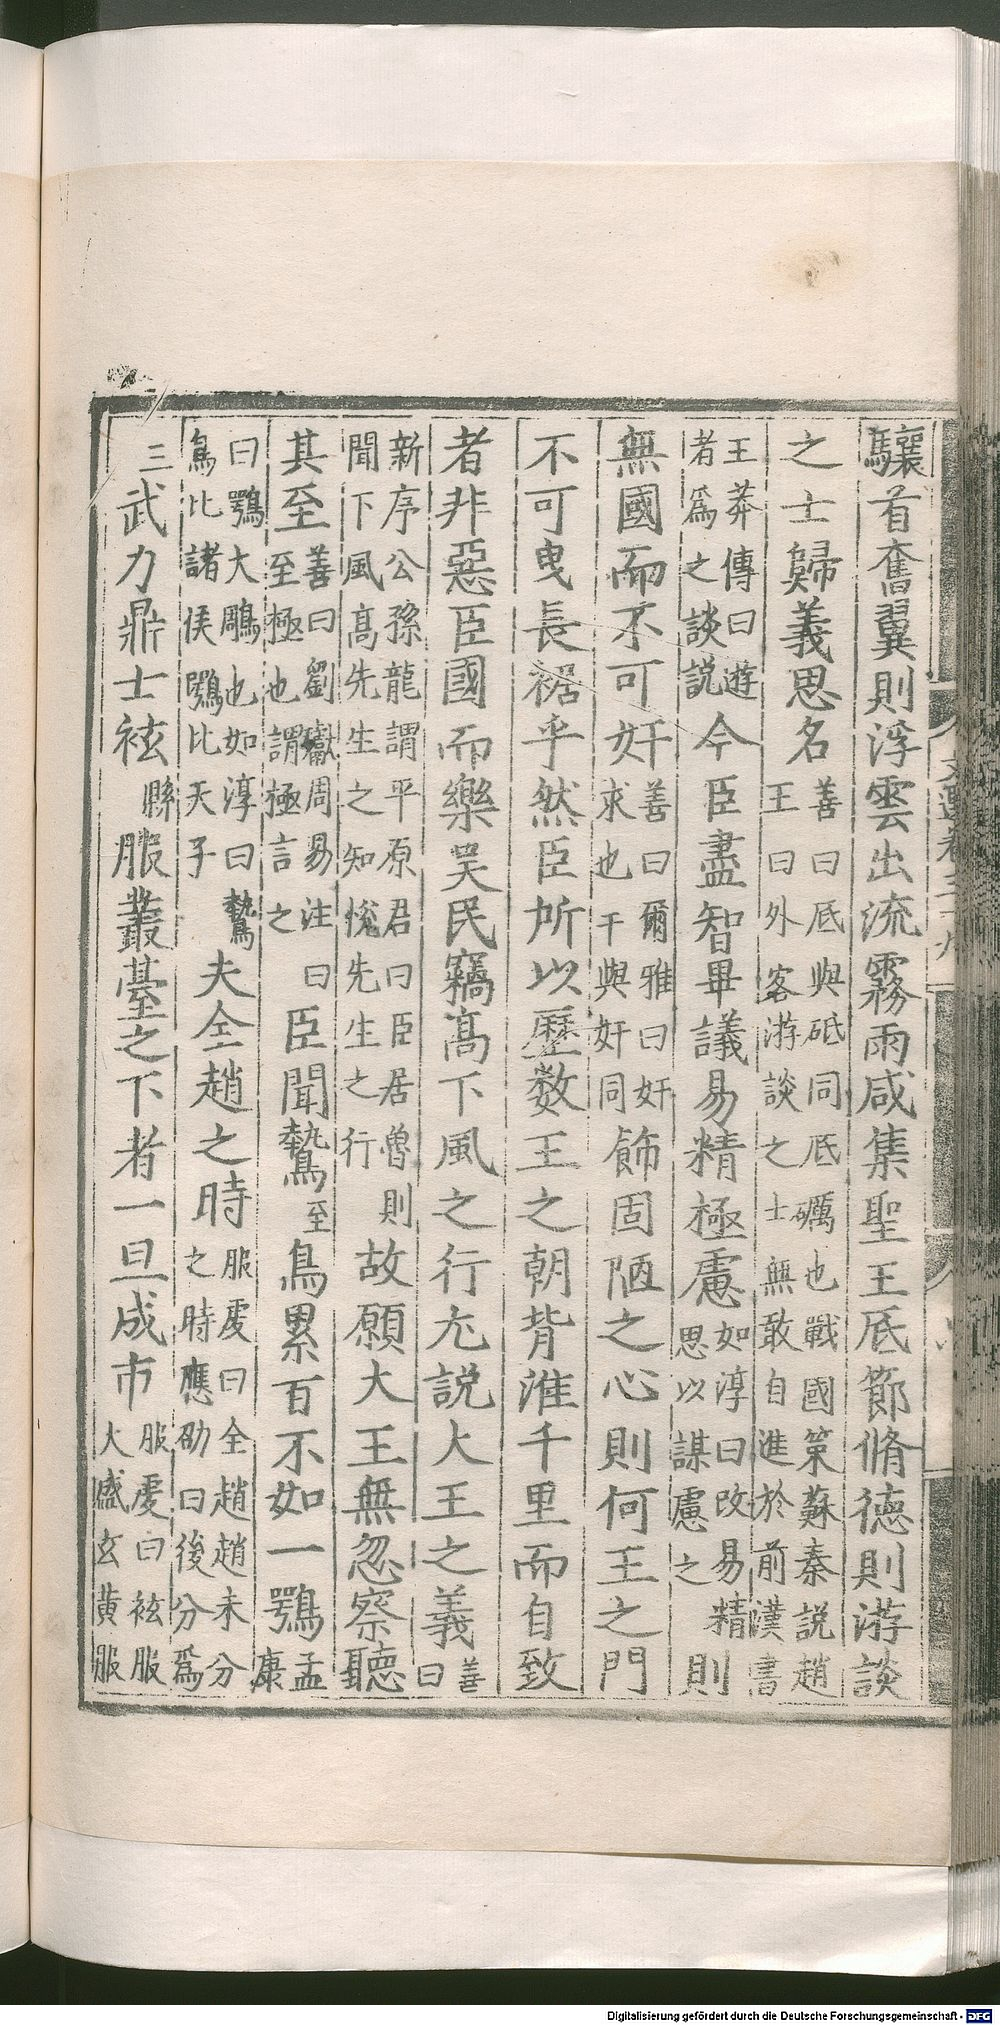 驤首奮翼則浮雲出流霧雨咸集聖王底節脩德則游談
之士歸義思名善曰底與砥同底礪也戰國策蘇秦說趙王曰外客游談之士無敢自進於前漢書
王莽傳曰遊者爲之談説今臣盡智畢議易精極慮如淳曰改易精思以謀慮之則
無國而不可奸善曰爾雅曰奸求也干與奸同飾固陋之心則何王之門
不可曳長裾乎然臣所以歷數王之朝背淮千里而自致
者非惡臣國而樂吳民竊高下風之行尤說大王之義善曰
新序公孫龍謂平原君曰臣居魯則聞下風高先生之知悅先生之行故願大王無忽察聽
其至善曰劉瓛周易注曰至極也謂極言之臣聞鷙至鳥累百不如一鶚孟康
曰鶚大鵰也如淳曰鷙鳥比諸侯鶚比天子夫全趙之時服虔曰全趙趙未分之時應劭曰後分爲
三武力鼎士袨縣服叢臺之下者一旦成市服虔曰袨服大盛玄黃服
Digitalisierung gefördert durch die Deutsche Forschungsgemeinschaft - DFG